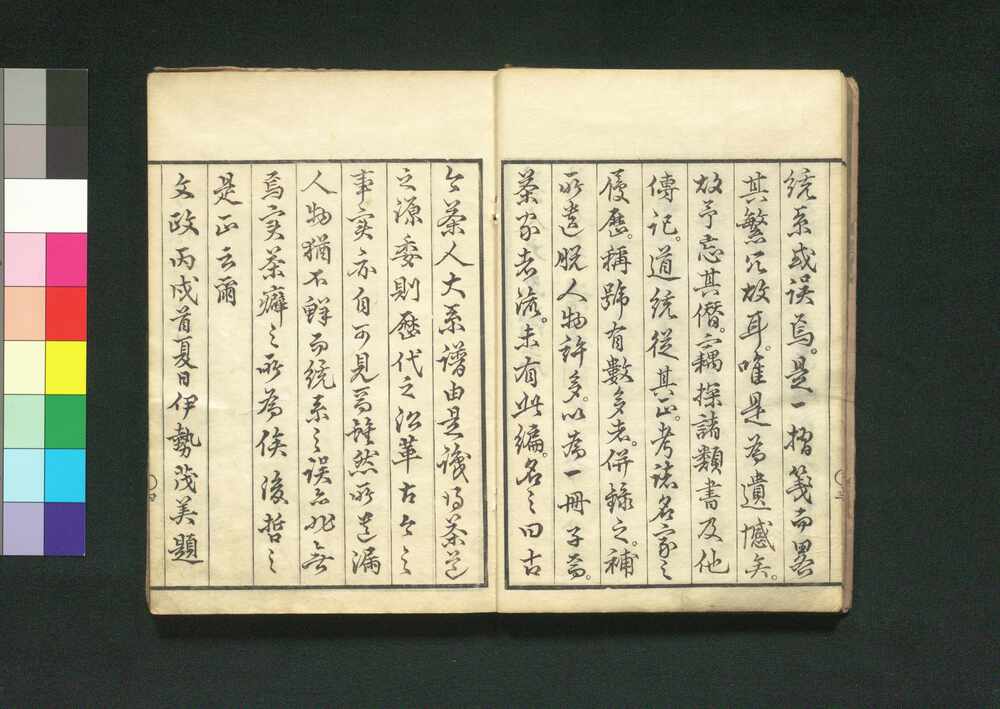 統系或誤焉。是一摺箋而畧
其繁冗故耳。唯是為遺憾矣。
故予忘其僭。竊探諸類書及他
傳記。道統從其正。考諸名家之
履歷。稱號有數多者。併錄之。補
所遺脱人物許多。以為一冊子焉。
茶家者流。未有此編。名之曰古
今茶人大系譜由是識得茶道
之源委則歷代之沿革古今之
事実亦自可見焉雖然所遺漏
人物猶不鮮而統系之誤亦非無
焉実茶癖之所為俟後哲之
是正云爾
文政丙戌首夏日伊勢茂美題